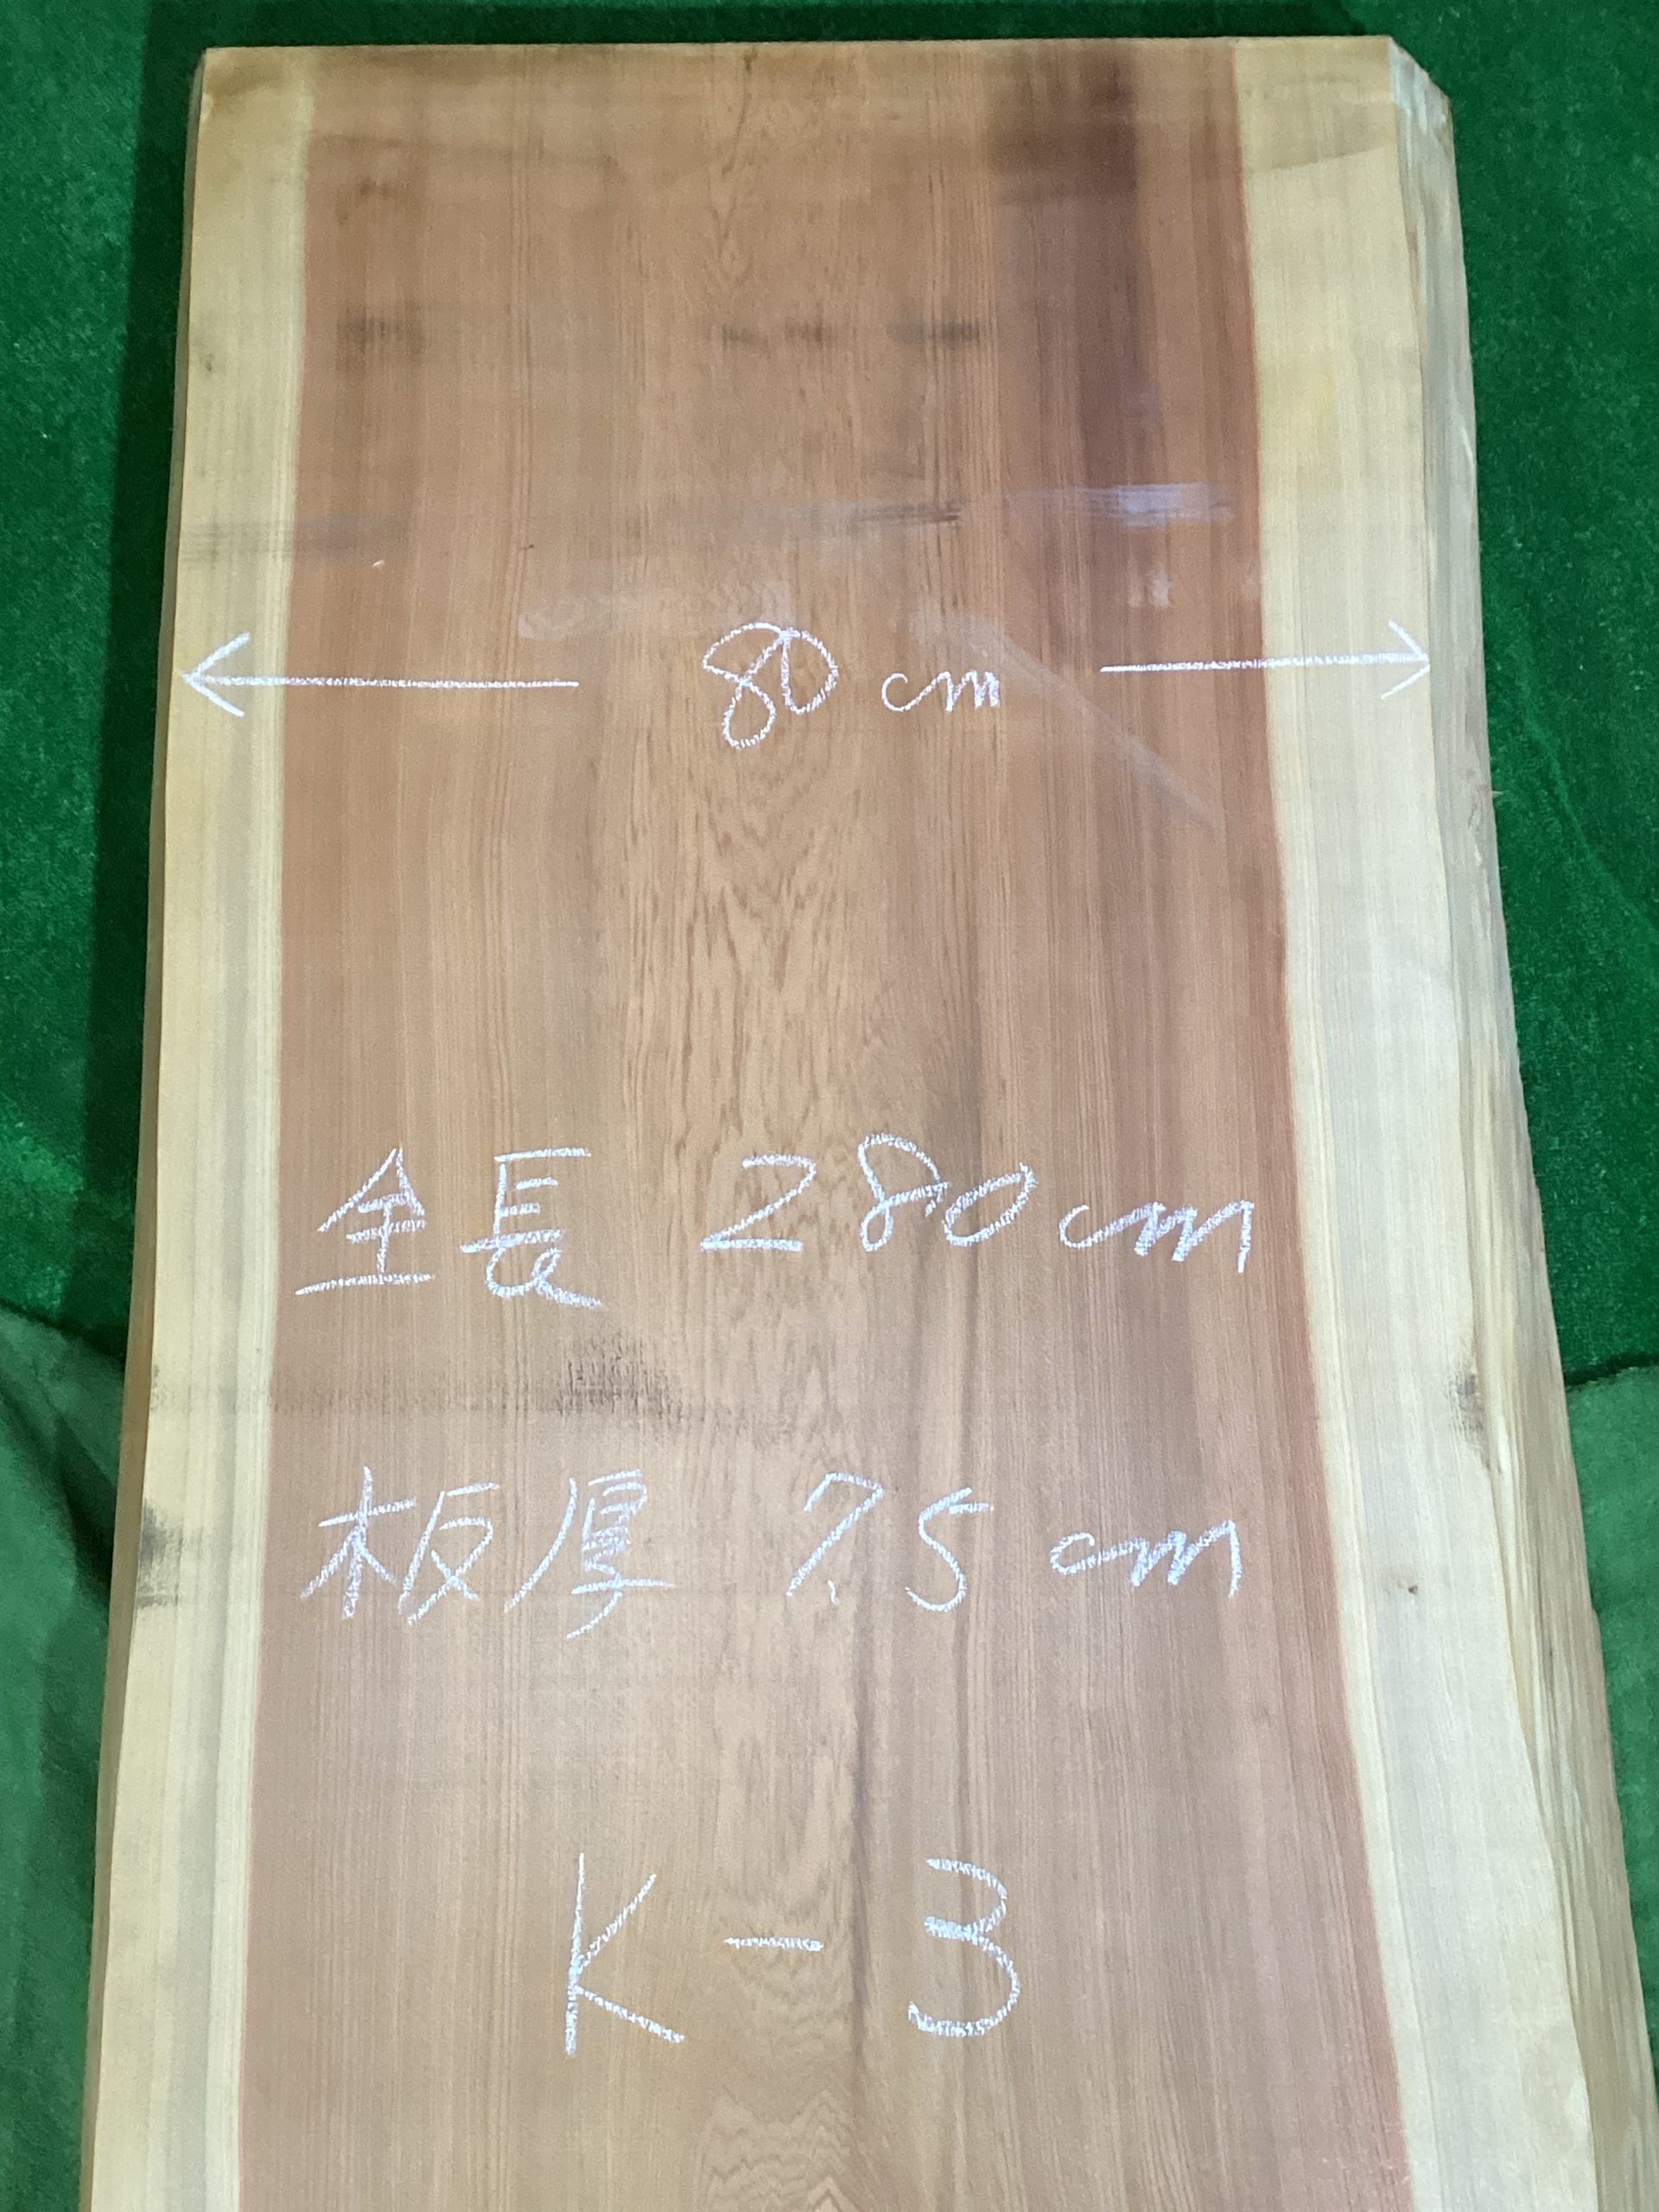 80 cm
全長 280cm
板厚 7.5 cm
K-3